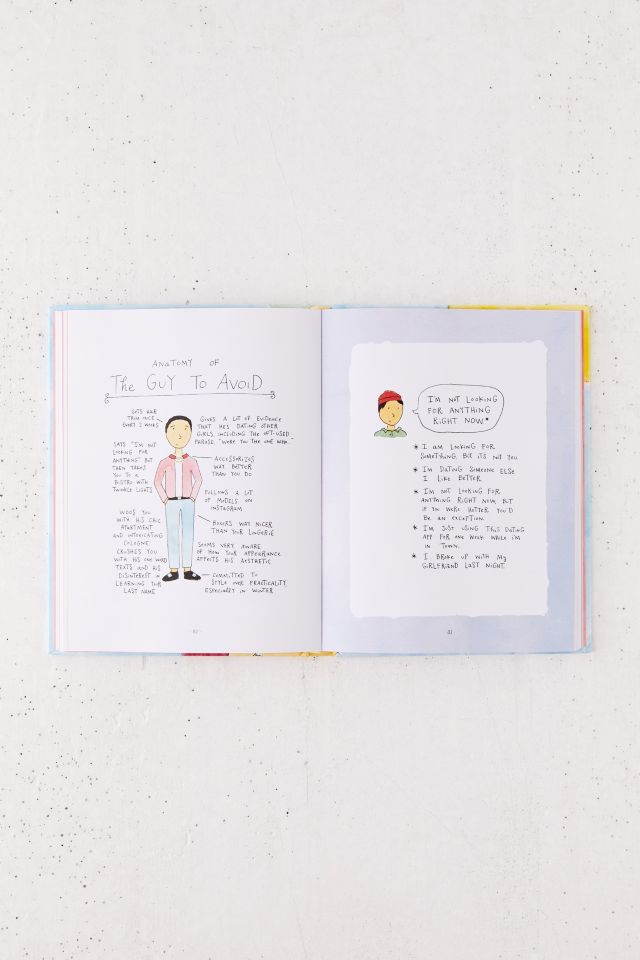 ANATOMY OF
The GUY TO AVOID
GETS HAIR
TRIM ONCE
EVERY 2 WEEKS
SAYS "I'M NOT
LOOKING FOR
ANYTHING" BUT
THEN TAKES
YOU TO A
BISTRO WITH
TWINKLE LIGHTS
WOOS YOU
WITH HIS CHIC
APARTMENT
AND INTOXICATING
COLOGNE,
CRUSHES YOU
WITH HIS ONE WORD
TEXTS AND HIS
DISINTEREST IN
LEARNING YOUR
LAST NAME
GIVES A LOT OF EVIDENCE
THAT HE'S DATING OTHER
GIRLS, INCLUDING THE OFT-USED
PHRASE, "WERE YOU THE ONE WHO..."
ACCESSORIZES
WAY BETTER
THAN YOU DO
FOLLOWS A LOT
OF MODELS ON
INSTAGRAM
BOXERS WAY NICER
THAN YOUR LINGERIE
SEEMS VERY AWARE
OF HOW YOUR APPEARANCE
AFFECTS HIS AESTHETIC
COMMITTED TO
STYLE OVER PRACTICALITY,
ESPECIALLY IN WINTER
I'M NOT LOOKING
FOR ANYTHING
RIGHT NOW*
* I AM LOOKING FOR
SOMETHING, BUT IT'S NOT YOU.
* I'M DATING SOMEONE ELSE
I LIKE BETTER.
* I'M NOT LOOKING FOR
ANYTHING RIGHT NOW, BUT
IF YOU WERE HOTTER YOU'D
BE AN EXCEPTION.
* I'M JUST USING THIS DATING
APP FOR ONE WEEK WHILE I'M
IN TOWN.
* I BROKE UP WITH MY
GIRLFRIEND LAST NIGHT.